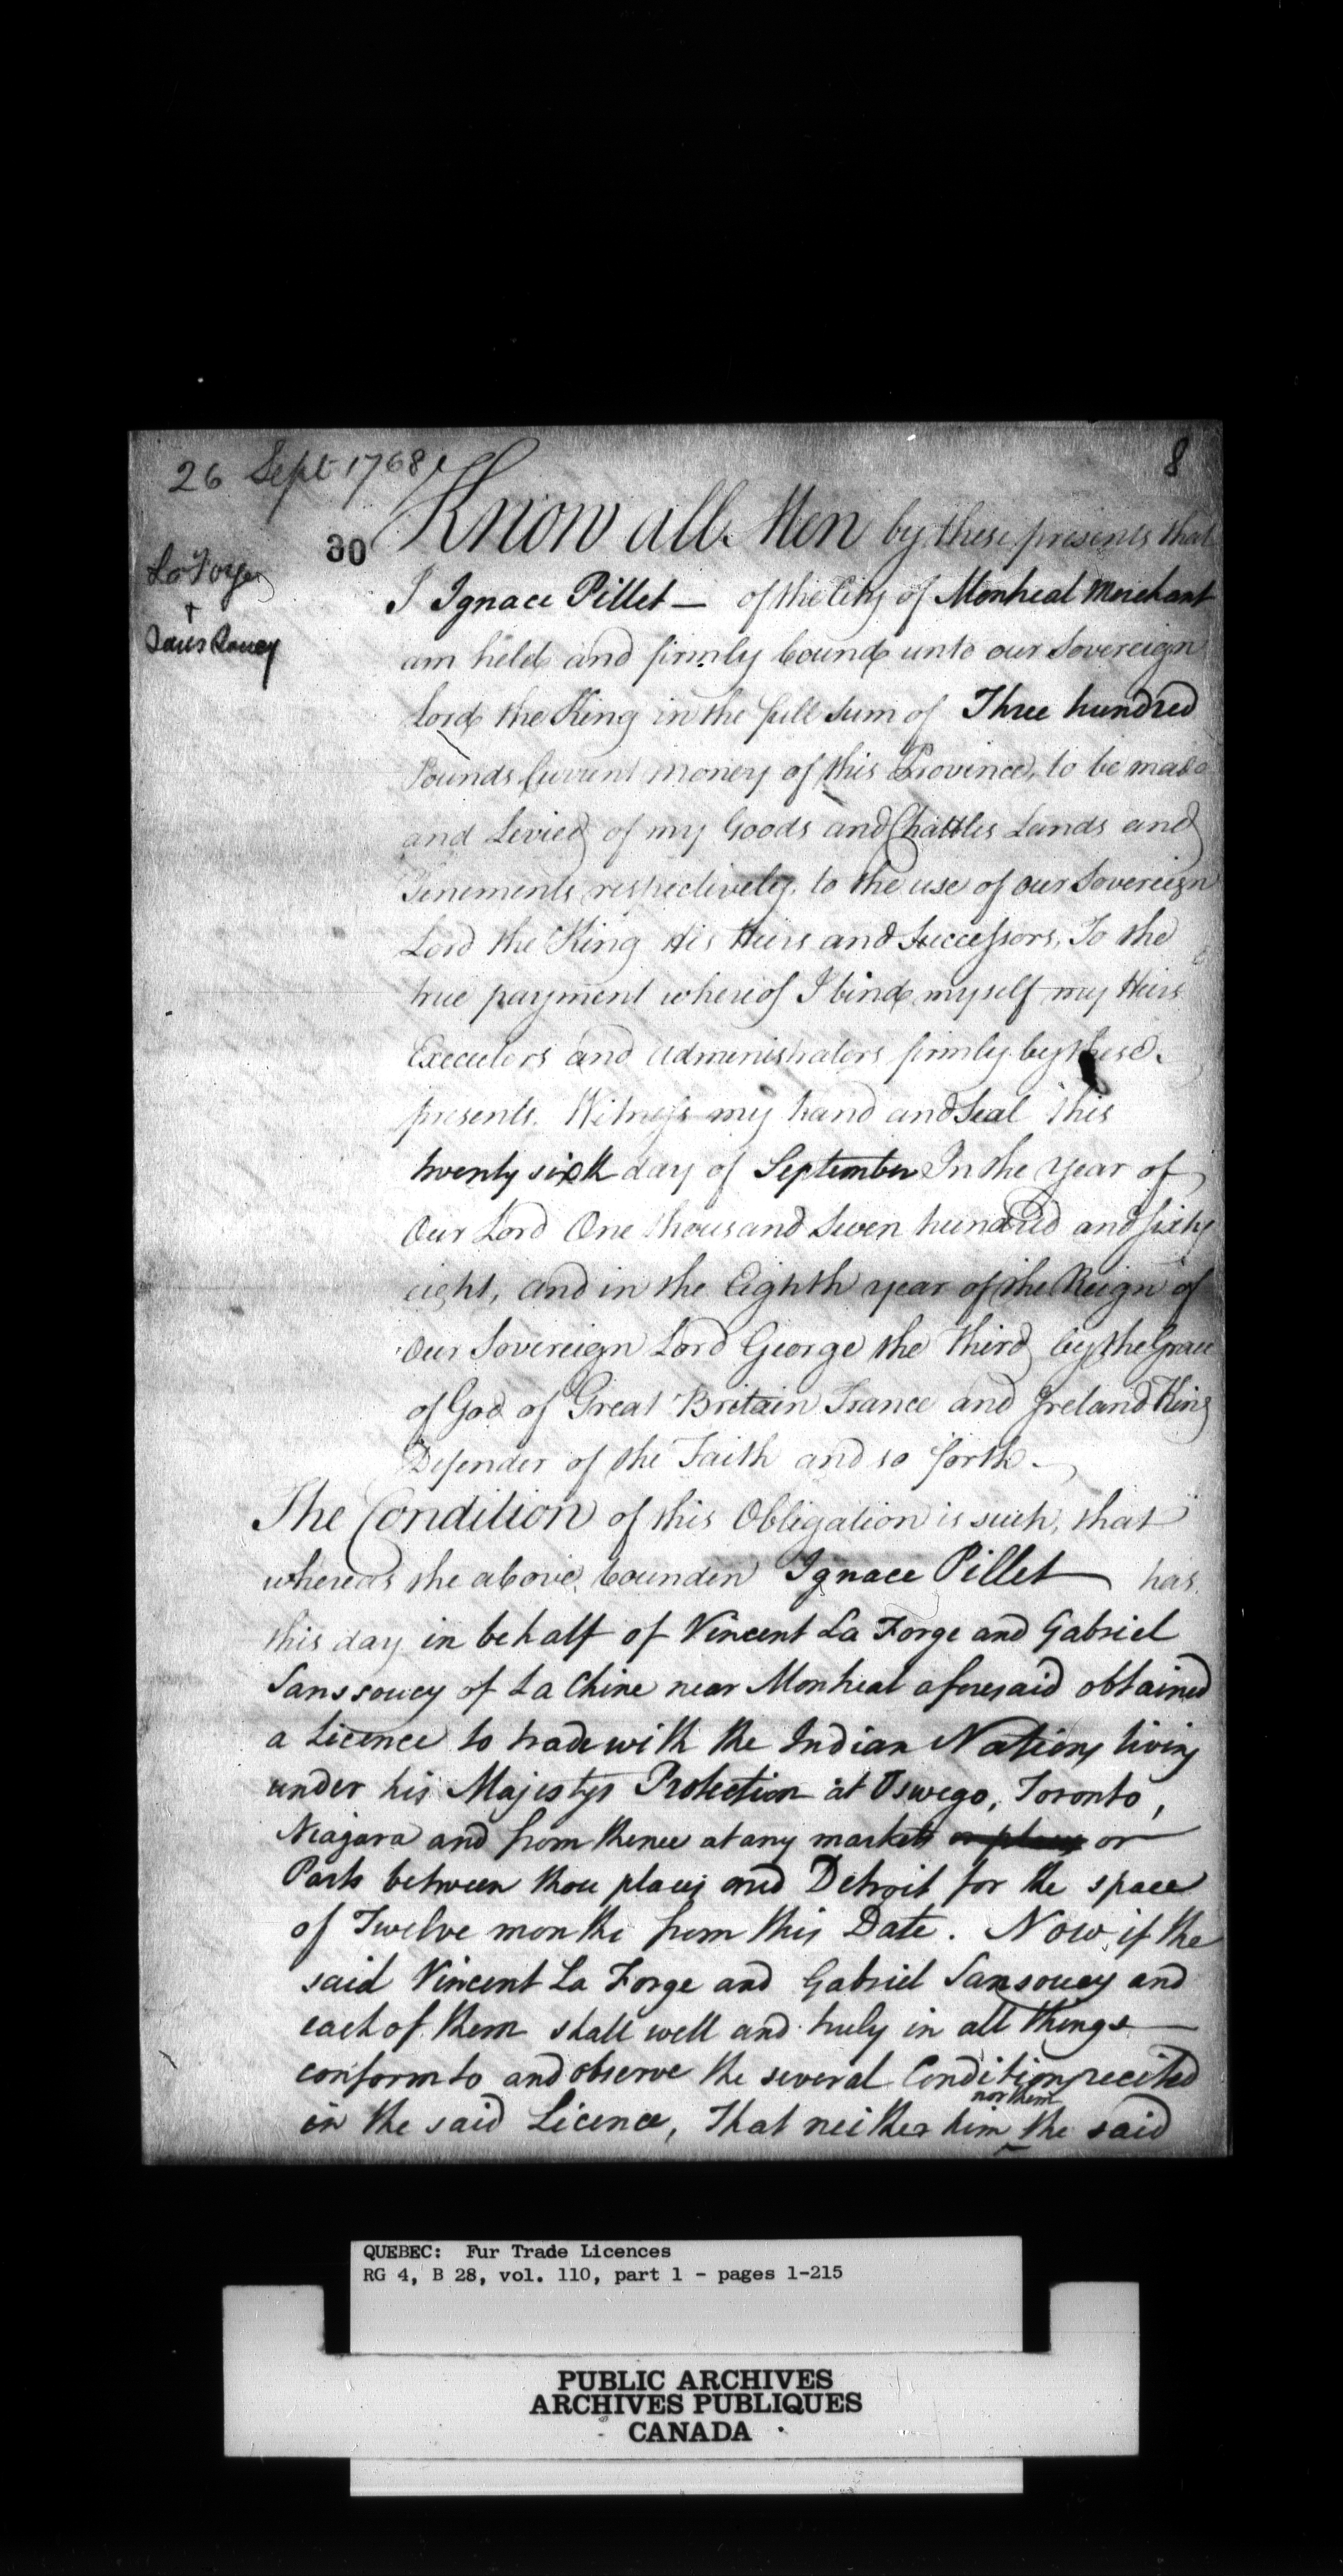 26 Sept 1768
8
30
Know all Men by these presents that
La Forge
+
Sans Soucy
I Ignace Pillet — of the City of Montreal Merchant
am held and firmly bound unto our Sovereign
Lord the King in the full Sum of Three hundred
Pounds Current money of this Province, to be made
and Levied of my Goods and Chattles Lands and
Tenements respectively, to the use of our Sovereign
Lord the King His Heirs and Successors, To the
true payment whereof I bind myself my Heirs
Executors and Administrators firmly by these
presents. Witness my hand and Seal this
twenty sixth day of September In the Year of
Our Lord One thousand Seven hundred and sixty
eight, and in the Eighth year of the Reign of
Our Sovereign Lord George the Third by the Grace
of God of Great Britain France and Ireland King
Defender of the Faith and so forth —
The Condition of this Obligation is such, that
whereas the above bounden Ignace Pillet — has
this day in behalf of Vincent La Forge and Gabriel
Sanssoucy of La Chine near Montreal aforesaid obtained
a Licence to trade with the Indian Nations living
under his Majestys Protection at Oswego, Toronto,
Niagara and from thence at any markets or places or
Parts between those places and Detroit for the space
of Twelve months from this Date. Now if the
said Vincent La Forge and Gabriel Sansoucy and
each of them shall well and truly in all things —
conform to and observe the several Conditions recited
nor them
in the said Licence, That neither him the said
QUEBEC: Fur Trade Licences
RG 4, B 28, vol. 110, part 1 - pages 1-215
PUBLIC ARCHIVES
ARCHIVES PUBLIQUES
CANADA